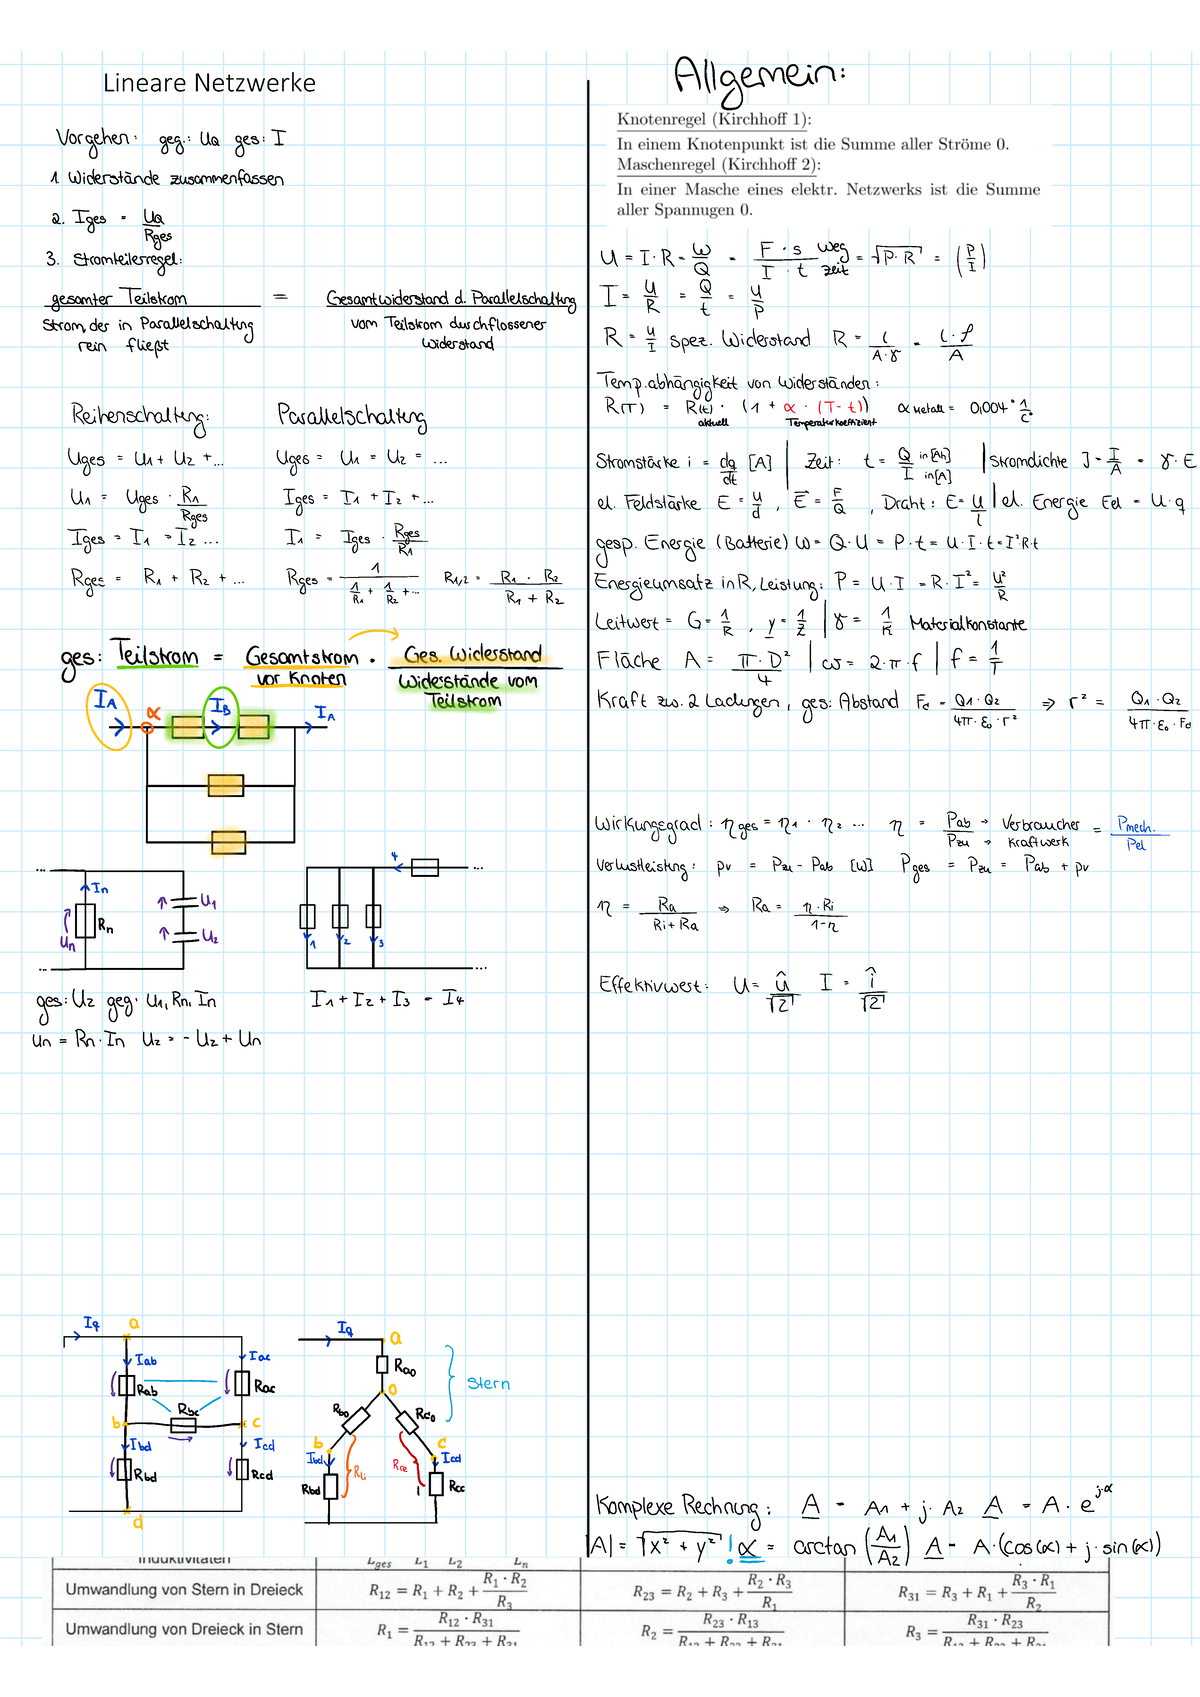 Lineare Netzwerke
Vorgehen: geg.: UQ ges: I
1. Widerstände zusammenfassen
2. Iges = UQ / Rges
3. Stromteilerregel:
gesamter Teilstrom / Strom, der in Parallelschaltung rein fließt = Gesamtwiderstand d. Parallelschaltung / vom Teilstrom durchflossener Widerstand
Reihenschaltung: Parallelschaltung
Uges = U1 + U2 + ... Uges = U1 = U2 = ...
U1 = Uges · R1 / Rges Iges = I1 + I2 + ...
Iges = I1 = I2 ... I1 = Iges · Rges / R1
Rges = R1 + R2 + ... Rges = 1 / (1/R1 + 1/R2 + ...) R1/2 = R1 · R2 / (R1 + R2)
ges: Teilstrom = Gesamtstrom vor Knoten · Ges. Widerstand / Widerstände vom Teilstrom
IA α IB IA
In Rn Un U1 U2
4 1 2 3
ges: U2 geg: U1, Rn, In I1 + I2 + I3 = I4
Un = Rn · In U2 = - U2 + Un
Iq a Iab Iac Rab Rac Rbc b c Ibd Icd Rbd Rcd d
Iq a Rao Stern o Rbo Rco b c Ibd Icd Rli Rre Rbd Rcc
Allgemein:
Knotenregel (Kirchhoff 1):
In einem Knotenpunkt ist die Summe aller Ströme 0.
Maschenregel (Kirchhoff 2):
In einer Masche eines elektr. Netzwerks ist die Summe
aller Spannugen 0.
U = I · R = W/Q = F · s Weg / I · t Zeit = √P · R = (P/I)
I = U/R = Q/t = U/P
R = U/I spez. Widerstand R = l / A · γ = l · ρ / A
Temp.abhängigkeit von Widerständen:
R(T) = R(t) · (1 + α · (T - t)) α Metall = 0,004 · 1/C°
aktuell Temperaturkoeffizient
Stromstärke i = dq/dt [A] | Zeit: t = Q in [Ah] / I in [A] | Stromdichte J = I/A = γ · E
el. Feldstärke E = U/d , E = F/Q , Draht: E = U/l | el. Energie Eel = U · q
gesp. Energie (Batterie) W = Q · U = P · t = U · I · t = I²Rt
Energieumsatz in R, Leistung: P = U · I = R · I² = U²/R
Leitwert = G = 1/R , y = 1/z | γ = 1/K Materialkonstante
Fläche A = π · D² / 4 | ω = 2 · π · f | f = 1/T
Kraft zw. 2 Ladungen, ges: Abstand Fd = Q1 · Q2 / 4π · ε0 · r² ⇒ r² = Q1 · Q2 / 4π · ε0 · Fd
Wirkungsgrad: ηges = η1 · η2 ... η = Pab → Verbraucher / Pzu → Kraftwerk = Pmech. / Pel
Verlustleistung: Pv = Pzu - Pab [W] Pges = Pzu = Pab + Pv
η = Ra / Ri + Ra ⇒ Ra = η · Ri / 1 - η
Effektivwert: U = û / √2 I = î / √2
Komplexe Rechnung: A = A1 + j · A2 A = A · e^j·α
|A| = √x² + y² ! α = arctan (A1 / A2) A = A · (cos(α) + j · sin(α))
Induktivitäten Lges L1 L2 Ln
Umwandlung von Stern in Dreieck R12 = R1 + R2 + R1 · R2 / R3 R23 = R2 + R3 + R2 · R3 / R1 R31 = R3 + R1 + R3 · R1 / R2
Umwandlung von Dreieck in Stern R1 = R12 · R31 / R12 + R23 + R31 R2 = R23 · R13 / R12 + R23 + R31 R3 = R31 · R23 / R12 + R23 + R31